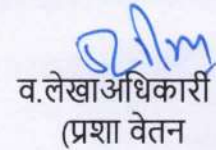 व.लेखाअधिकारी
(प्रशा वेतन